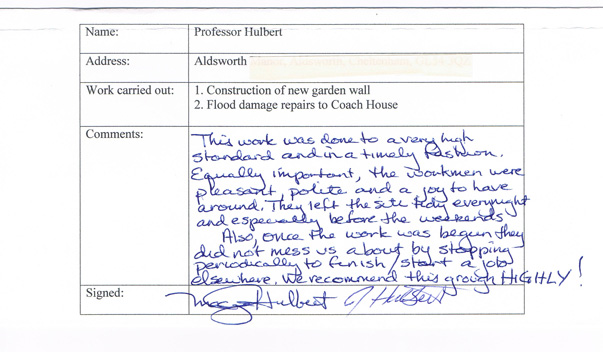 Name: Professor Hulbert
Address: Aldsworth
Work carried out: 1. Construction of new garden wall
2. Flood damage repairs to Coach House
Comments: This work was done to a very high
standard and in a timely fashion.
Equally important, the workmen were
pleasant, polite and a joy to have
around. They left the site tidy everynight
and especially before the weekends
Also, once the work was begun they
did not mess us about by stopping
periodically to finish/start a job
elsewhere. We recommend this group HIGHLY!
Signed: Hulbert J Hulbert